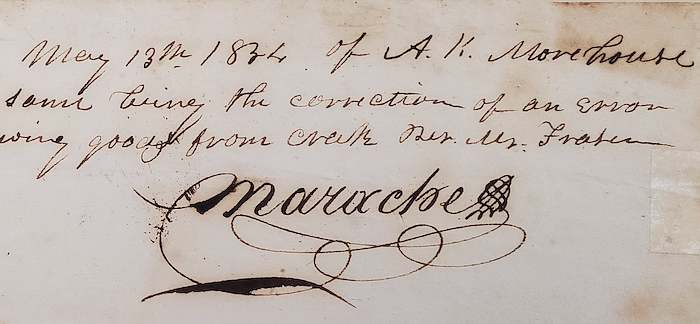 May 13th 1834 of A. K. Morehouse
same being the correction of an error
wing goods from crate Per. Mr. Frasier
Marache